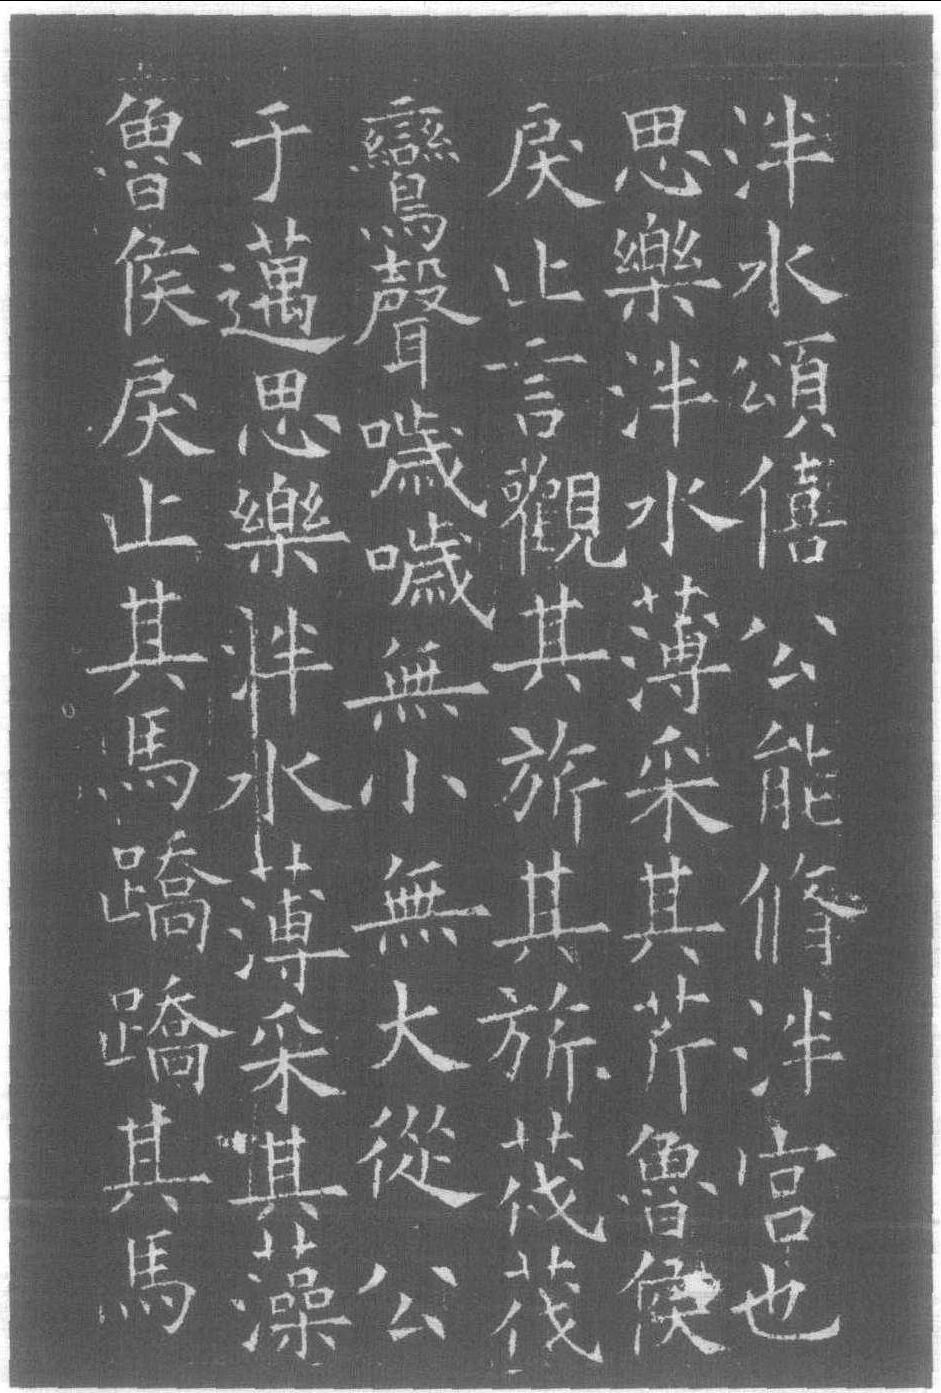 泮水頌僖公能脩泮宮也
思樂泮水薄采其芹魯侯
戾止言觀其旂其旂茷茷
鸞聲噦噦無小無大從公
于邁思樂泮水薄采其藻
魯侯戾止其馬蹻蹻其馬